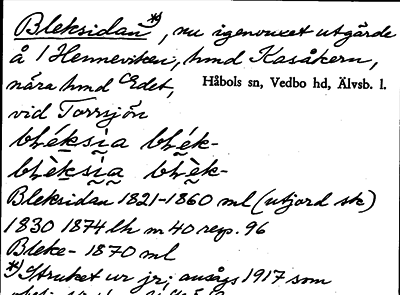 Bleksidan *), nu igenvuxet utgärde
å 1 Henneviken, hmd Kasåkern,
nära hmd Edet, Håbols sn, Vedbo hd, Älvsb. l.
vid Torrsjön
bléksia blék-
blèksìa blèk-
Bleksidan 1821-1860 ml (utjord stk)
1830 1874 lh m 40 rep. 96
Bleke- 1870 ml
*) Struket ur jr; ansågs 1917 som